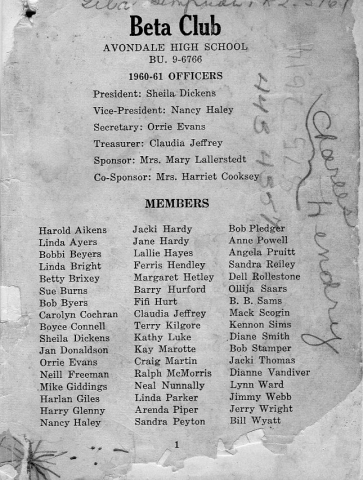 Beta Club
AVONDALE HIGH SCHOOL
BU. 9-6766
1960-61 OFFICERS
President: Sheila Dickens
Vice-President: Nancy Haley
Secretary: Orrie Evans
Treasurer: Claudia Jeffrey
Sponsor: Mrs. Mary Lallerstedt
Co-Sponsor: Mrs. Harriet Cooksey
MEMBERS
Harold Aikens
Linda Ayers
Bobbi Beyers
Linda Bright
Betty Brixey
Sue Burns
Bob Byers
Carolyn Cochran
Boyce Connell
Sheila Dickens
Jan Donaldson
Orrie Evans
Neill Freeman
Mike Giddings
Harlan Giles
Harry Glenny
Nancy Haley
Jacki Hardy
Jane Hardy
Lallie Hayes
Ferris Hendley
Margaret Hetley
Barry Hurford
Fifi Hurt
Claudia Jeffrey
Terry Kilgore
Kathy Luke
Kay Marotte
Craig Martin
Ralph McMorris
Neal Nunnally
Linda Parker
Arenda Piper
Sandra Peyton
Bob Pledger
Anne Powell
Angela Pruitt
Sandra Reiley
Dell Rollestone
Ollija Saars
B. B. Sams
Mack Scogin
Kennon Sims
Diane Smith
Bob Stamper
Jacki Thomas
Dianne Vandiver
Lynn Ward
Jimmy Webb
Jerry Wright
Bill Wyatt
1